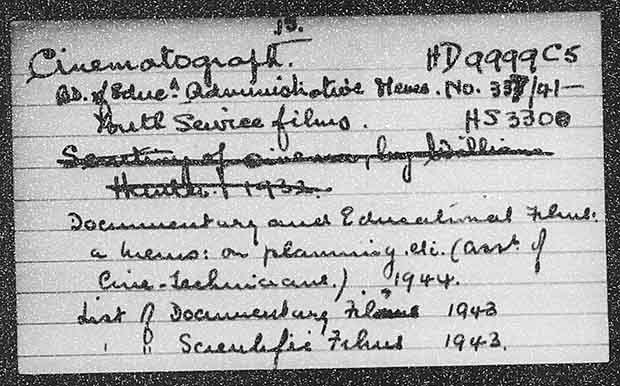 13.
Cinematograph. HD9999C5
Bd. of Educn. Administrative Memo. No. 337/41—
Youth Service films. HS3300
Scrutiny of cinema, by William
Hunter. 1932.
Documentary and Educational Films:
a memo: on planning, etc. (Assn. of
Cine-Technicians.) 1944.
List of Documentary Films 1943
" " Scientific Films 1943.